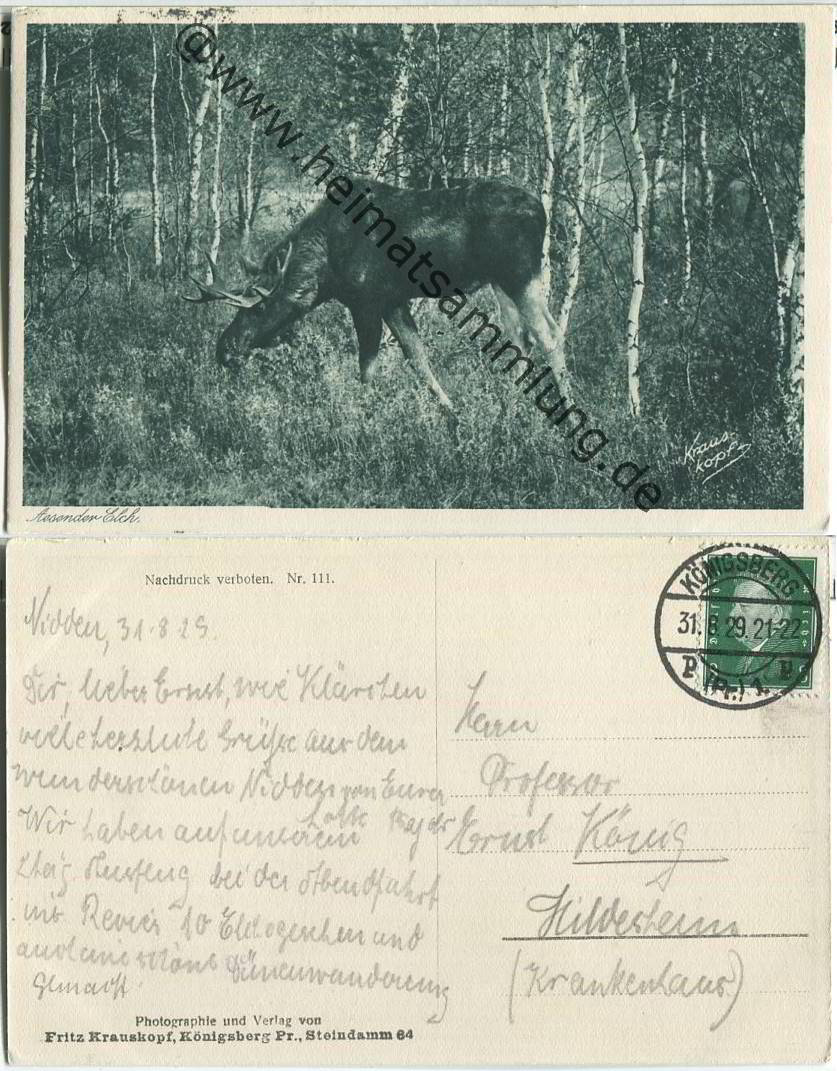 @www.heimatsammlung.de
Kraus-
kopf
Aesender Elch.
Nachdruck verboten. Nr. 111.
KÖNIGSBERG
31.8.29.21-22
P (Pr.) 1. P
Nidden, 31.8.29.
Dir, lieber Ernst, wie Klärchen
viele herzliche Grüße aus dem
wunderschönen Nidden von Eurer
Lotte
Wir haben auf unserem
bei der Abendfahrt
ins Revier 10 Elche gesehen und
auch eine schöne Dünenwanderung
gemacht.
Herrn
Professor
Ernst König
Hildesheim
(Krankenhaus)
Photographie und Verlag von
Fritz Krauskopf, Königsberg Pr., Steindamm 64